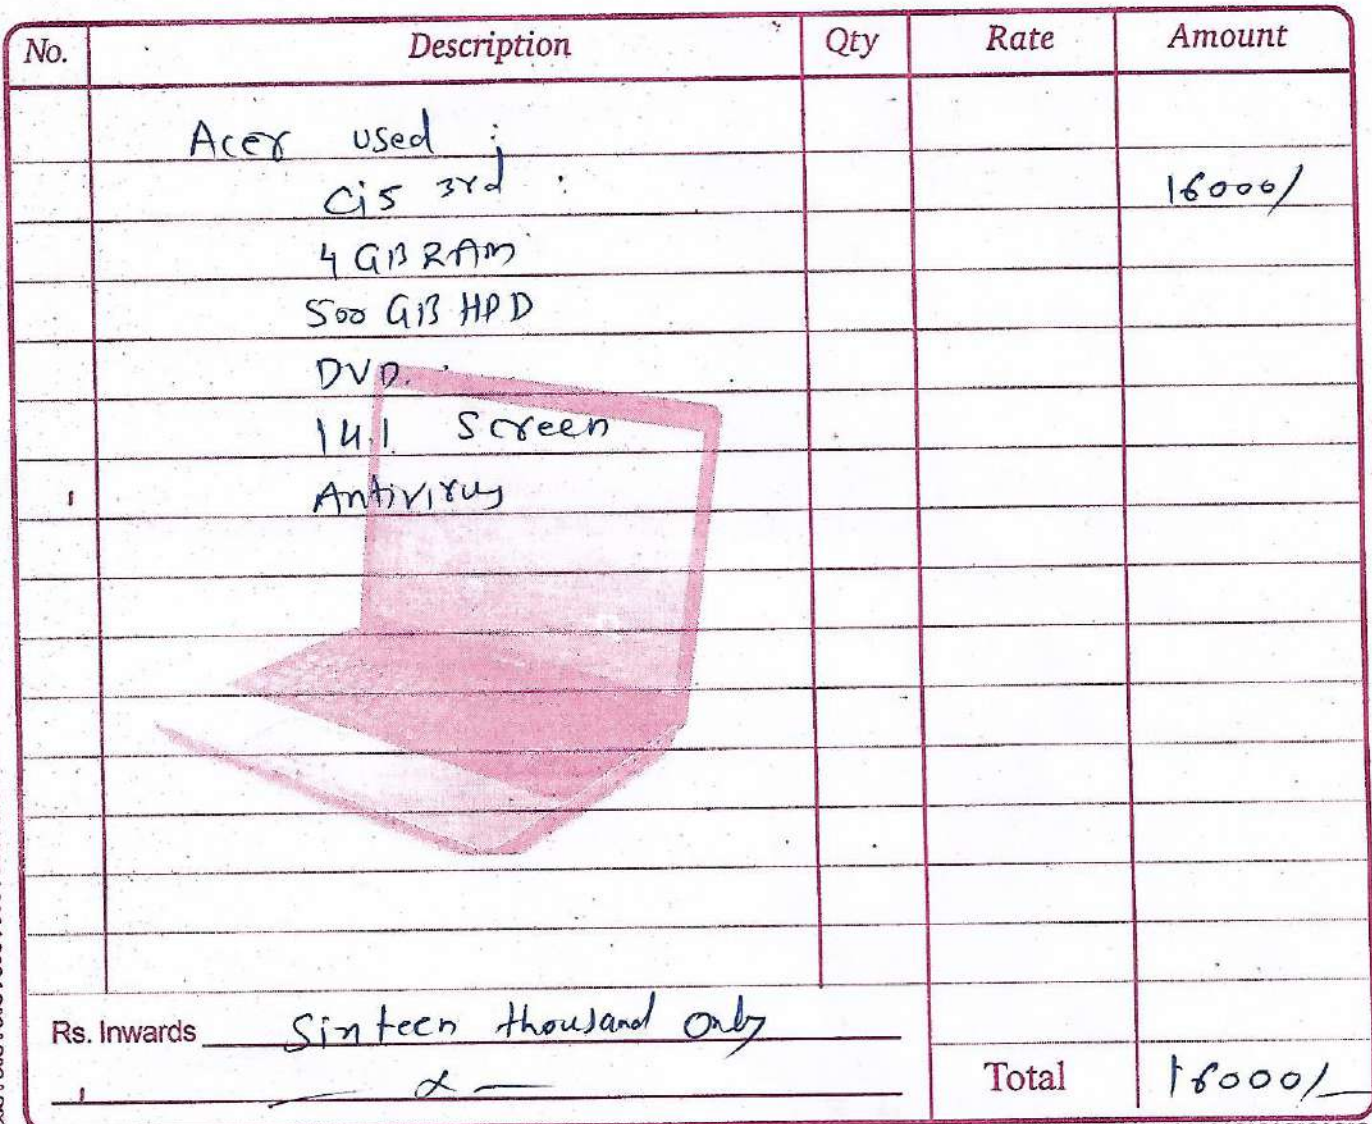 No. Description Qty Rate Amount
Acer used ;
Ci5 3rd : 16000/
4 GB RAM
500 GB HDD
DVD.
14.1 Screen
Antivirus
Rs. Inwards Sixteen thousand only
— x —
Total 16000/-